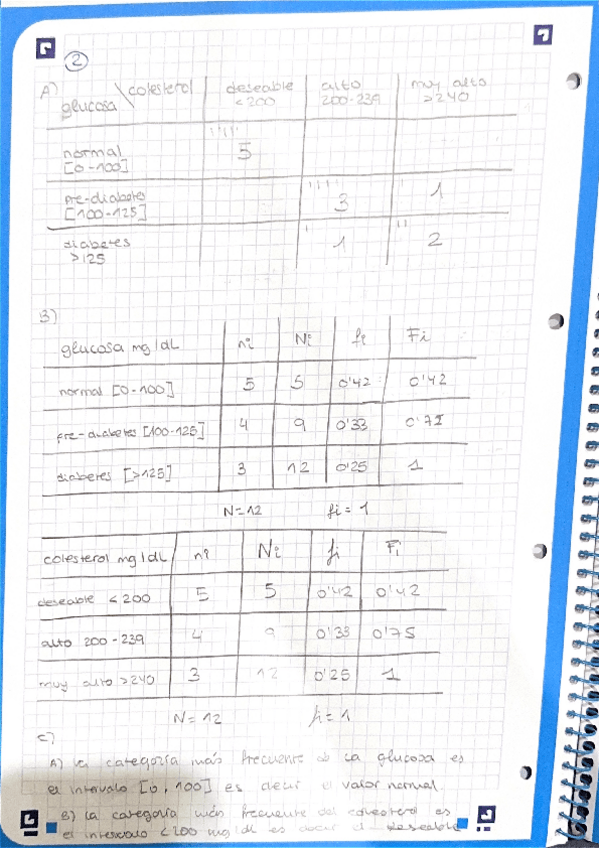 2
A) glucosa \ colesterol deseable <200 alto 200-239 muy alto >240
normal [0-100] 5
Pre-diabetes [100-125] 3 1
diabetes >125 1 2
B)
glucosa mg/dL ni Ni fi Fi
normal [0-100] 5 5 0'42 0'42
pre-diabetes [100-125] 4 9 0'33
diabetes [>125] 3 12 0'25 1
N=12 fi=1
colesterol mg/dL ni Ni fi Fi
deseable <200 5 5 0'42 0'42
alto 200-239 4 9 0'33 0'75
muy alto >240 3 12 0'25 1
N=12 fi=1
C)
A) la categoría más frecuente de la glucosa es
el intervalo [0, 100] es decir el valor normal.
B) la categoría más frecuente del colesterol es
el intervalo <200 mg/dL es decir el deseable